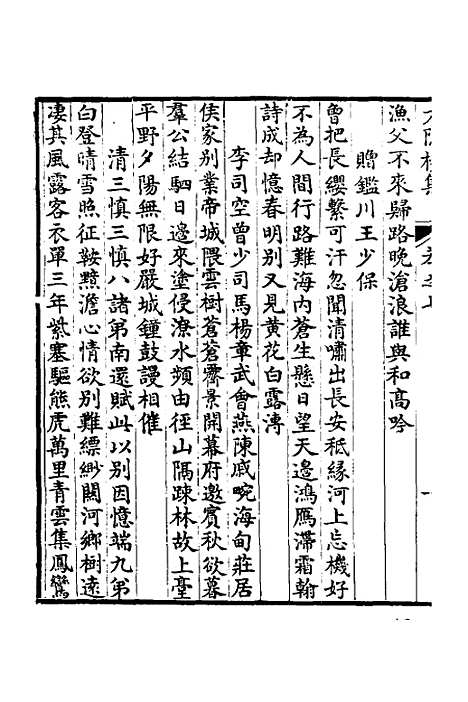 漁父不來歸路晚滄浪誰與和高吟
贈鑑川王少保
曾把長纓繫可汗忽聞清嘯出長安秪緣河上忘機好
不為人間行路難海內蒼生懸日望天邊鴻鴈滯霜翰
詩成却憶春明別又見黃花白露漙
李司空曾少司馬楊章武會燕陳戚畹海甸莊居
侯家別業帝城隈雲樹蒼蒼霽景開幕府邀賓秋欲暮
羣公結駟日邊來塗侵潦水頻由徑山隔疎林故上臺
平野夕陽無限好嚴城鐘鼓謾相催
清三慎三慎八諸弟南還賦此以別因憶端九弟
白登晴雪照征鞍黯澹心情欲別難縹緲關河鄉樹遠
凄其風露客衣單三年紫塞驅熊虎萬里青雲集鳳鸞